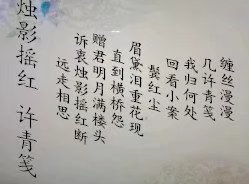 缠丝漫漫
几许青笺
我归何处
回看小案
鬓红尘
眉黛泪重花现
直到横桥怨
赠君明月满楼头
诉衷烛影摇红断
远走相思
烛影摇红 许青笺